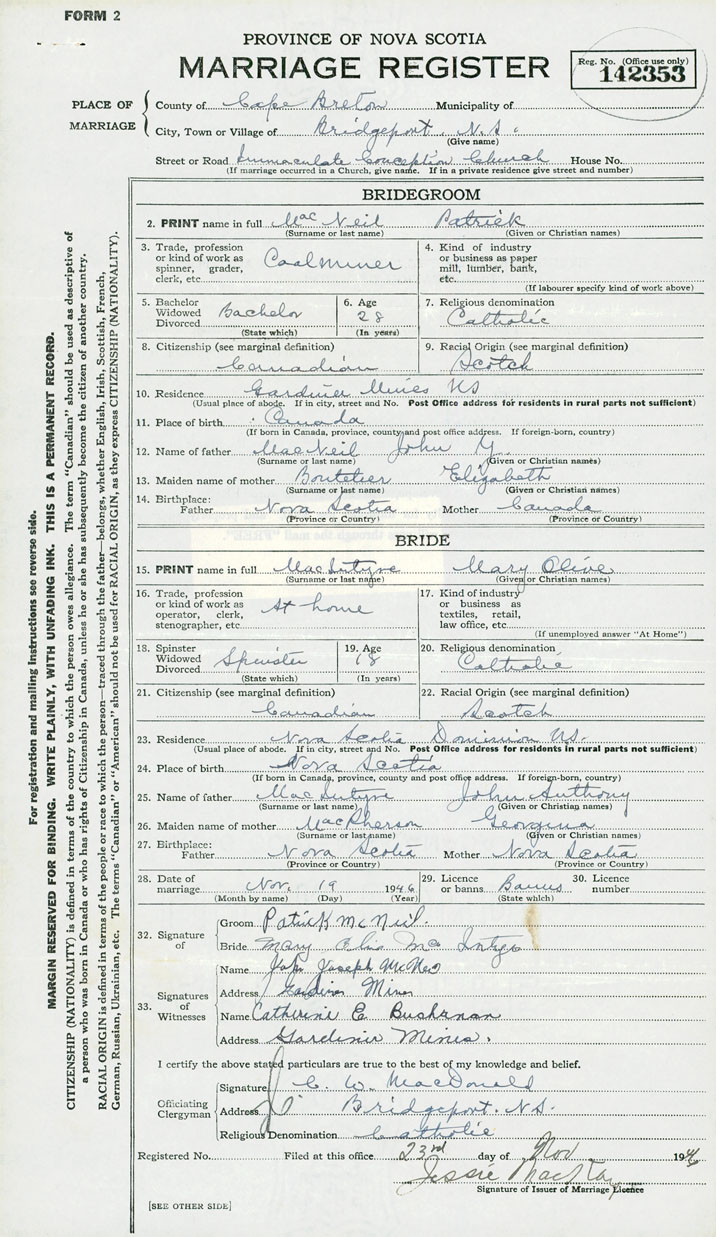 FORM 2
PROVINCE OF NOVA SCOTIA
MARRIAGE REGISTER
Reg. No. (Office use only)
142353
PLACE OF MARRIAGE
County of Cape Breton Municipality of
City, Town or Village of Bridgeport, N.S.
(Give name)
Street or Road Immaculate Conception Church House No.
(If marriage occurred in a Church, give name. If in a private residence give street and number)
BRIDEGROOM
2. PRINT name in full MacNeil Patrick
(Surname or last name) (Given or Christian names)
3. Trade, profession or kind of work as spinner, grader, clerk, etc. Coalminer
4. Kind of industry or business as paper mill, lumber, bank, etc.
(If labourer specify kind of work above)
5. Bachelor Widowed Divorced Bachelor
(State which)
6. Age 28
(In years)
7. Religious denomination
Catholic
8. Citizenship (see marginal definition)
Canadian
9. Racial Origin (see marginal definition)
Scotch
10. Residence Gardiner Mines NS
(Usual place of abode. If in city, street and No. Post Office address for residents in rural parts not sufficient)
11. Place of birth Canada
(If born in Canada, province, county and post office address. If foreign-born, country)
12. Name of father MacNeil John Y.
(Surname or last name) (Given or Christian names)
13. Maiden name of mother Boutelier Elizabeth
(Surname or last name) (Given or Christian names)
14. Birthplace:
Father Nova Scotia Mother Canada
(Province or Country) (Province or Country)
BRIDE
15. PRINT name in full MacIntyre Mary Olive
(Surname or last name) (Given or Christian names)
16. Trade, profession or kind of work as operator, clerk, stenographer, etc. At home
17. Kind of industry or business as textiles, retail, law office, etc.
(If unemployed answer "At Home")
18. Spinster Widowed Divorced Spinster
(State which)
19. Age 18
(In years)
20. Religious denomination
Catholic
21. Citizenship (see marginal definition)
Canadian
22. Racial Origin (see marginal definition)
Scotch
23. Residence Nova Scotia Dominion NS.
(Usual place of abode. If in city, street and No. Post Office address for residents in rural parts not sufficient)
24. Place of birth Nova Scotia
(If born in Canada, province, county and post office address. If foreign-born, country)
25. Name of father MacIntyre John Anthony
(Surname or last name) (Given or Christian names)
26. Maiden name of mother MacPherson Georgina
(Surname or last name) (Given or Christian names)
27. Birthplace:
Father Nova Scotia Mother Nova Scotia
(Province or Country) (Province or Country)
28. Date of marriage Nov. 19 1946
(Month by name) (Day) (Year)
29. Licence or banns Banns
(State which)
30. Licence number
32. Signature of
Groom Patrick McNeil.
Bride Mary Mac
33. Signatures of Witnesses
Name John Joseph McNeil
Address Gardiner Mines
Name Catherine E Buchanan
Address Gardiner Mines.
I certify the above stated particulars are true to the best of my knowledge and belief.
Officiating Clergyman
Signature C. W. MacDonald
Address Bridgeport. N.S.
Religious Denomination Catholic
Registered No. Filed at this office 23rd day of Nov 1946
Jessie MacKay
Signature of Issuer of Marriage Licence
[SEE OTHER SIDE]
For registration and mailing instructions see reverse side.
MARGIN RESERVED FOR BINDING. WRITE PLAINLY, WITH UNFADING INK. THIS IS A PERMANENT RECORD.
CITIZENSHIP (NATIONALITY) is defined in terms of the country to which the person owes allegiance. The term "Canadian" should be used as descriptive of
a person who was born in Canada or who has rights of Citizenship in Canada, unless he or she has subsequently become the citizen of another country.
RACIAL ORIGIN is defined in terms of the people or race to which the person—traced through the father—belongs, whether English, Irish, Scottish, French,
German, Russian, Ukrainian, etc. The terms "Canadian" or "American" should not be used for RACIAL ORIGIN, as they express CITIZENSHIP (NATIONALITY).